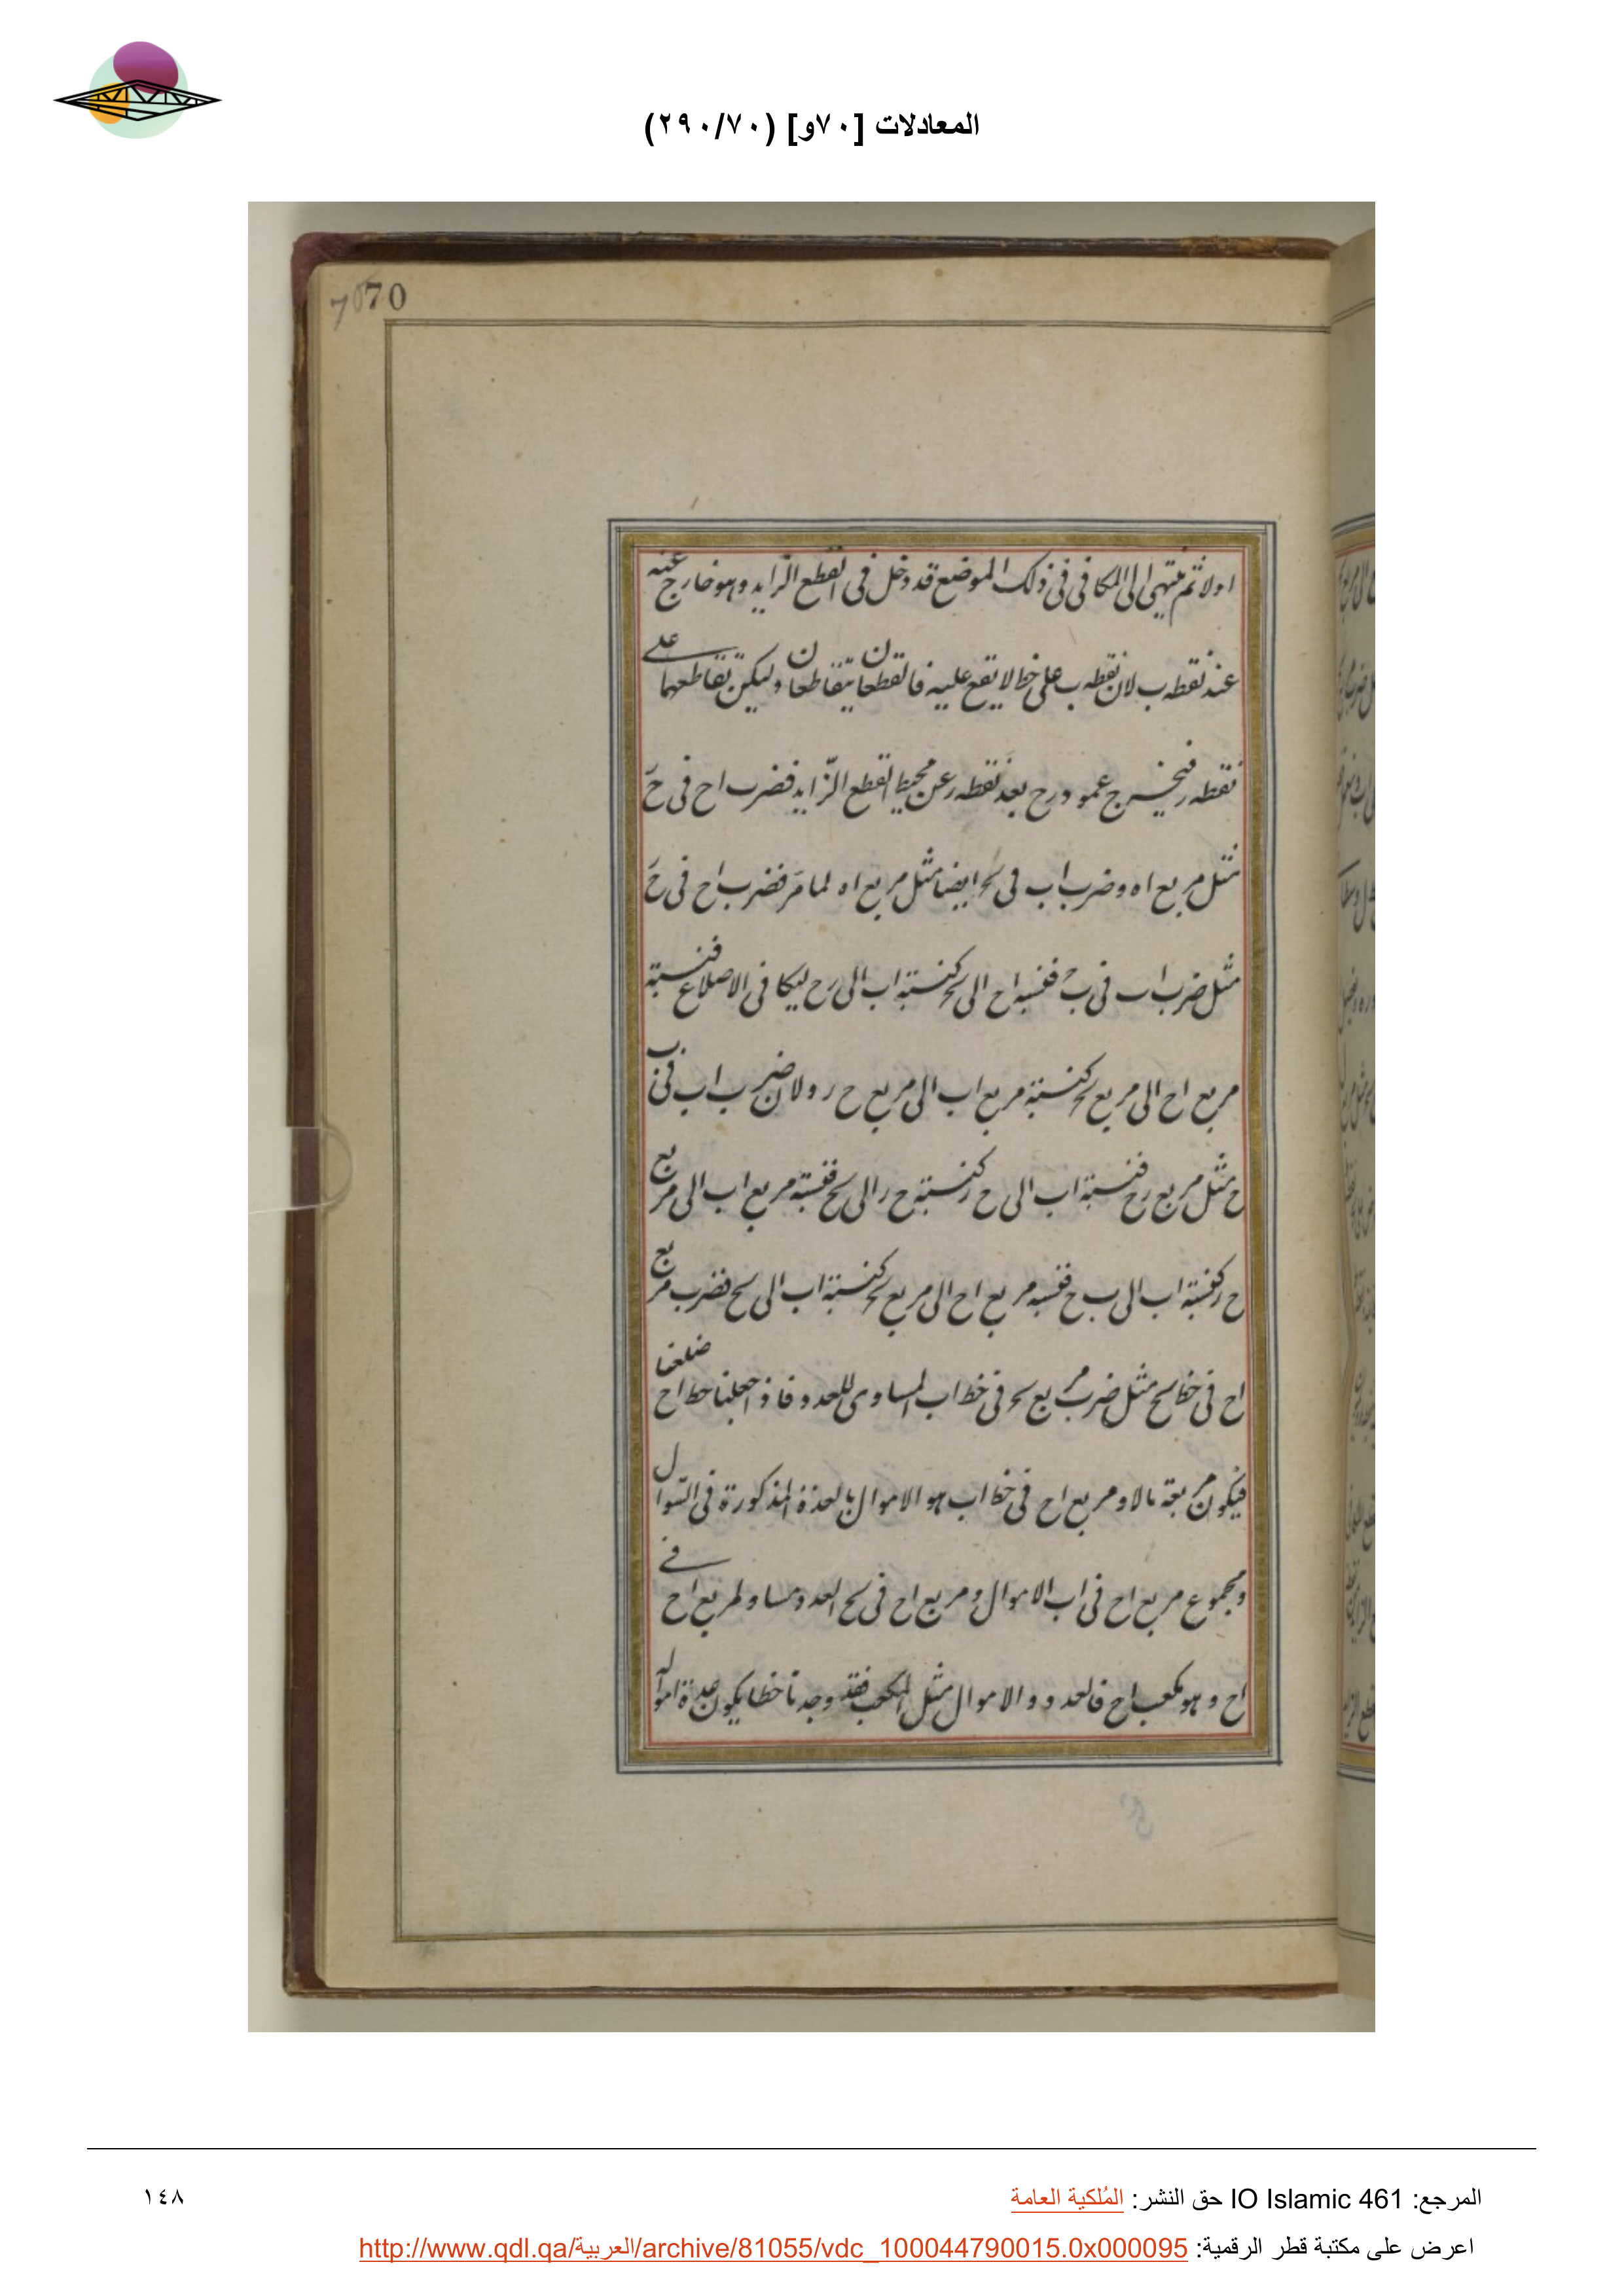 المعادلات [٧٠و] (٢٩٠/٧٠)
70 70
اولا ثم ينتهى الى المكافى فى ذلك الموضع قد دخل فى القطع الزايد وهو خارج عنه
عند نقطه ب لان نقطه ب على خط لا يقع عليه فالقطعان يتقاطعان وليكن تقاطعهما على
نقطه ر فيخرج عمود رح بعد نقطه ر عن محيط القطع الزايد فضرب اح فى حر
مثل مربع اه وضرب اب فى ايضا مثل مربع اه لما مر فضرب اح فى حر
مثل ضرب اب فى فنسبه اح الى كنسبة اب الى رح ليكافى الاضلاع فنسبة
مربع اح الى مربع كنسبة مربع اب الى مربع ح ر ولان ضرب اب فى ب
ح مثل مربع رح فنسبة اب الى ح ر كنسبة ح ر الى فنسبة مربع اب الى مربع
ح ر كنسبة اب الى ب ح فنسبه مربع اح الى مربع كنسبة اب الى فضرب مربع
اح فى خط مثل ضرب مربع فى خط اب المساوى للعدد فاذ جعلنا خط اح ضلعا
فيكون مربعة مالا ومربع اح فى خط اب هو الاموال بالعدة المذكورة فى السوال
ومجموع مربع اح فى اب الاموال ومربع اح فى العدد مساو لمربع اح فے
اح وهو مكعب اح فالعدد والاموال مثل المكعب فقد وجدنا خطا يكون عدة امواله
المرجع: IO Islamic 461 حق النشر: المُلكية العامة
١٤٨
اعرض على مكتبة قطر الرقمية: http://www.qdl.qa/العربية/archive/81055/vdc_100044790015.0x000095